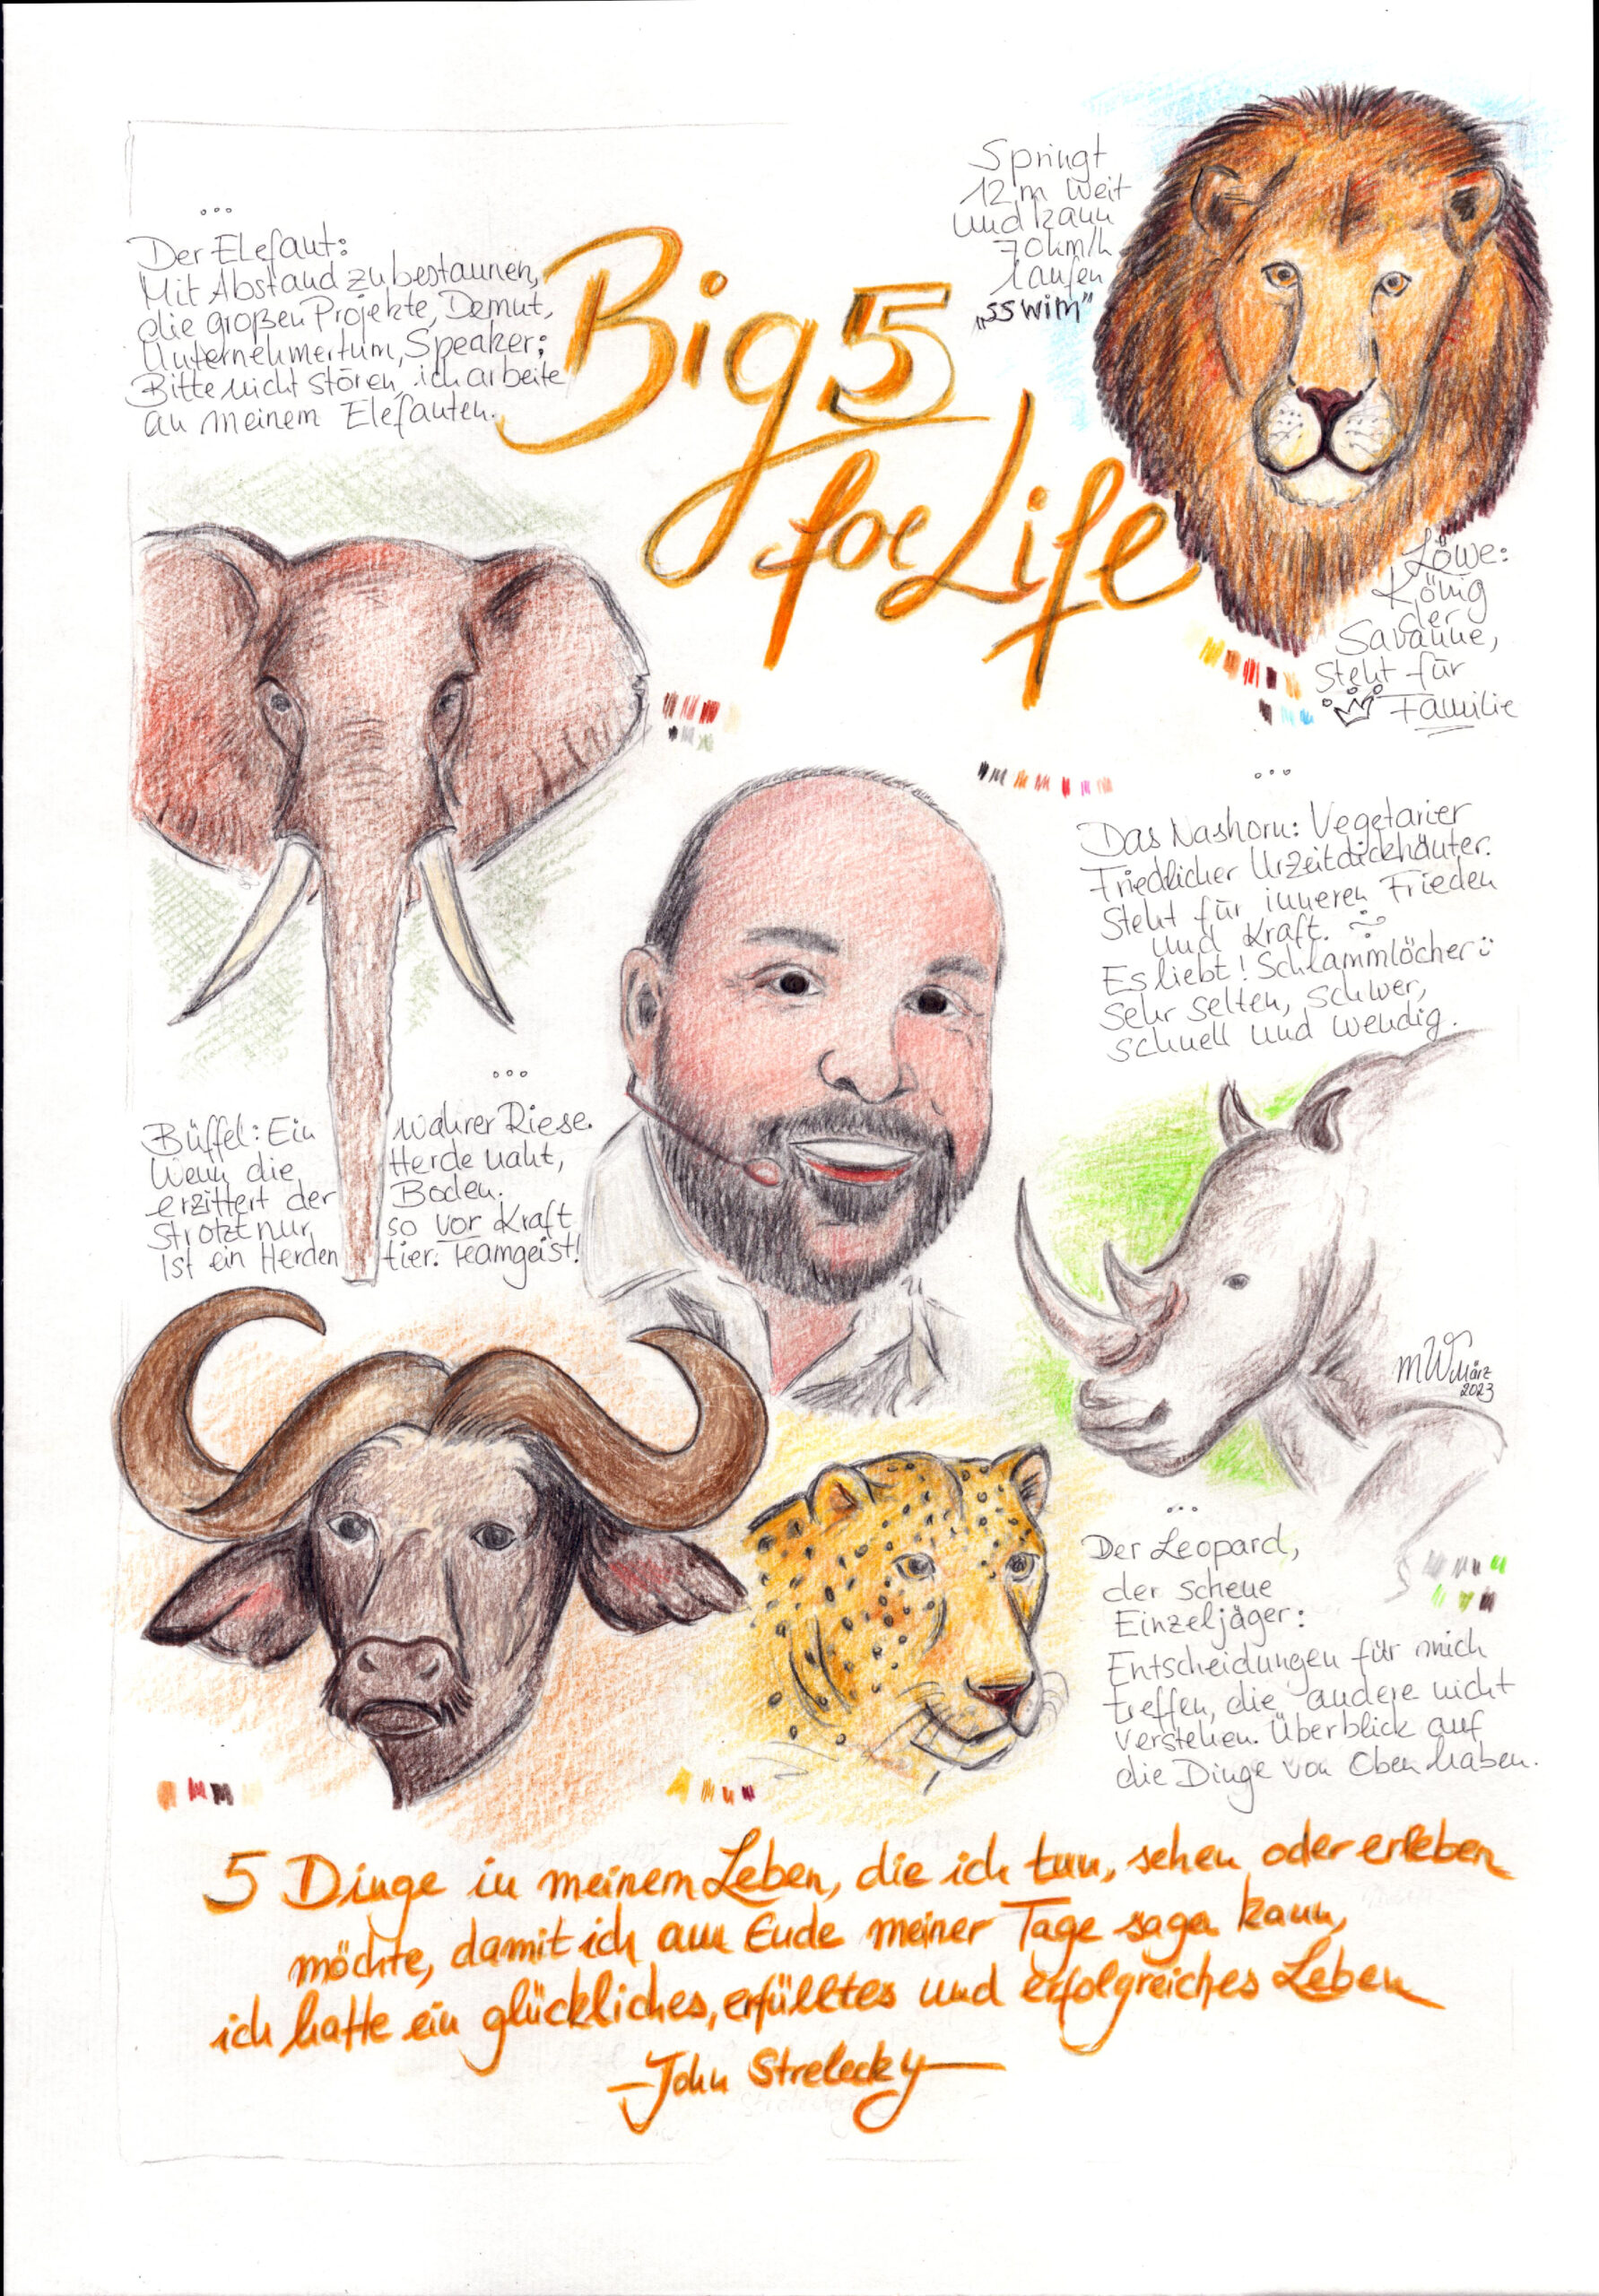 Big 5
for Life
Springt
12 m weit
und kann
70 km/h
laufen
„sswim"
...
Der Elefant:
Mit Abstand zu bestaunen,
die großen Projekte, Demut,
Unternehmertum, Speaker;
Bitte nicht stören, ich arbeite
an meinem Elefanten.
Löwe:
König
der
Savanne,
steht für
Familie
...
Das Nashorn: Vegetarier
Friedlicher Urzeitdickhäuter.
Steht für inneren Frieden
und Kraft.
Es liebt! Schlammlöcher
Sehr selten, schwer,
schnell und wendig.
...
Büffel: Ein wahrer Riese.
Wenn die Herde naht,
erzittert der Boden.
Strotzt nur so vor Kraft
ist ein Herdentier. Teamgeist!
MW März
2023
...
Der Leopard,
der scheue
Einzeljäger:
Entscheidungen für mich
treffen, die andere nicht
verstehen. Überblick auf
die Dinge von Oben haben.
5 Dinge in meinem Leben, die ich tun, sehen oder erleben
möchte, damit ich am Ende meiner Tage sagen kann,
ich hatte ein glückliches, erfülltes und erfolgreiches Leben
– John Strelecky –